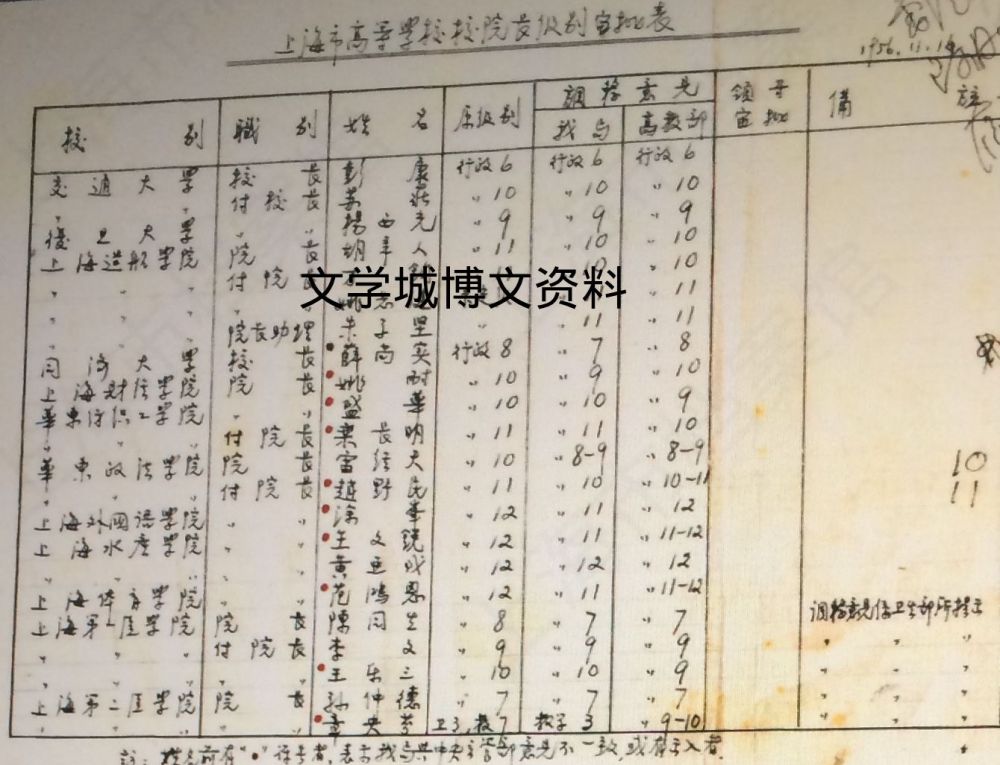 上海市高等学校校院长级别审批表
1956.11.14
校别 職别 姓名 原级别 調整意見 领导审批 備註
我局 高教部
交通大學 校長 彭康 行政6 行政6 行政6
〃 付校長 苏莊 〃10 〃10 〃10
復旦大學 〃 楊西光 〃9 〃9 〃9
上海造船学院 院長 胡辛人 〃11 〃10 〃10
〃 付院長 〃10 〃10
文学城博文资料
〃 〃 〃11
〃 院長助理 朱子里 〃 〃11 〃11
同济大學 校長 薛尚实 行政8 〃7 〃8
上海财经学院 院長 姚耐 〃10 〃9 〃10
華東纺织工学院 〃 盛華 〃10 〃10 〃9
〃 付院長 長明 〃11 〃11 〃10
華東政法学院 院長 雷经天 〃10 〃8-9 〃8-9 10
〃 付院長 趙野民 〃11 〃10 〃10-11 11
上海外國语學院 〃 涂峯 〃12 〃11 〃12
上海水產学院 〃 王文锐 〃12 〃11 〃11-12
〃 〃 黄亚成 〃12 〃12 〃12
上海体育学院 〃 范鴻恩 〃12 〃11 〃11-12
上海第一医学院 院長 陳同生 〃8 〃7 〃7 调整意見係卫生部所提出
〃 付院長 李文 〃9 〃9 〃9 〃 〃 〃
〃 〃 王乐三 〃10 〃10 〃9 〃 〃 〃
上海第二医学院 院長 孙仲德 〃7 〃7 〃7 〃 〃 〃
〃 〃 章央芬 卫3,教7 教学3 〃9-10 〃 〃 〃
註：姓名前有"•"符号者,表示我局与中央主管部意見不一致,或有出入者.